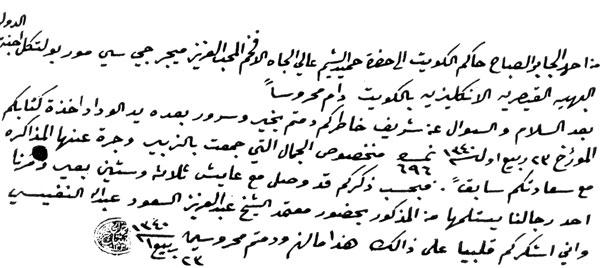 الدولة
من احمد الجابر الصباح حاكم الكويت الى حضرة حميد الشيم عالي الجاه الافخم المحب العزيز ميجر جي سي مور بولتكل اجنت
البهيه القيصريه الانكليزيه بالكويت دام محروساً
بعد السلام و السوال عن شريف خاطركم دمتم بخير وسرور بعده بيد الوداد اخذة كتابكم
المؤرخ ٢٣ ربيع اول سنة ١٣٤٠ نمرة ٦٩٦ منخصوص الجمال التي جمعت بالزبير وجرة عنها المذاكره
مع سعادتكم سابقاً. فبحسب ذكركم قد وصل مع عايش ثلاثة وستين بعير وامرنا
احد رجالنا يستلمها من المذكور بحضور معتمد الشيخ عبدالعزيز السعود عبدالله النفيسي
واني اشكركم قلبيا على ذالك هذا مالزم ودمتم محروسين
٢٣ ربيع ا ١٣٤٠